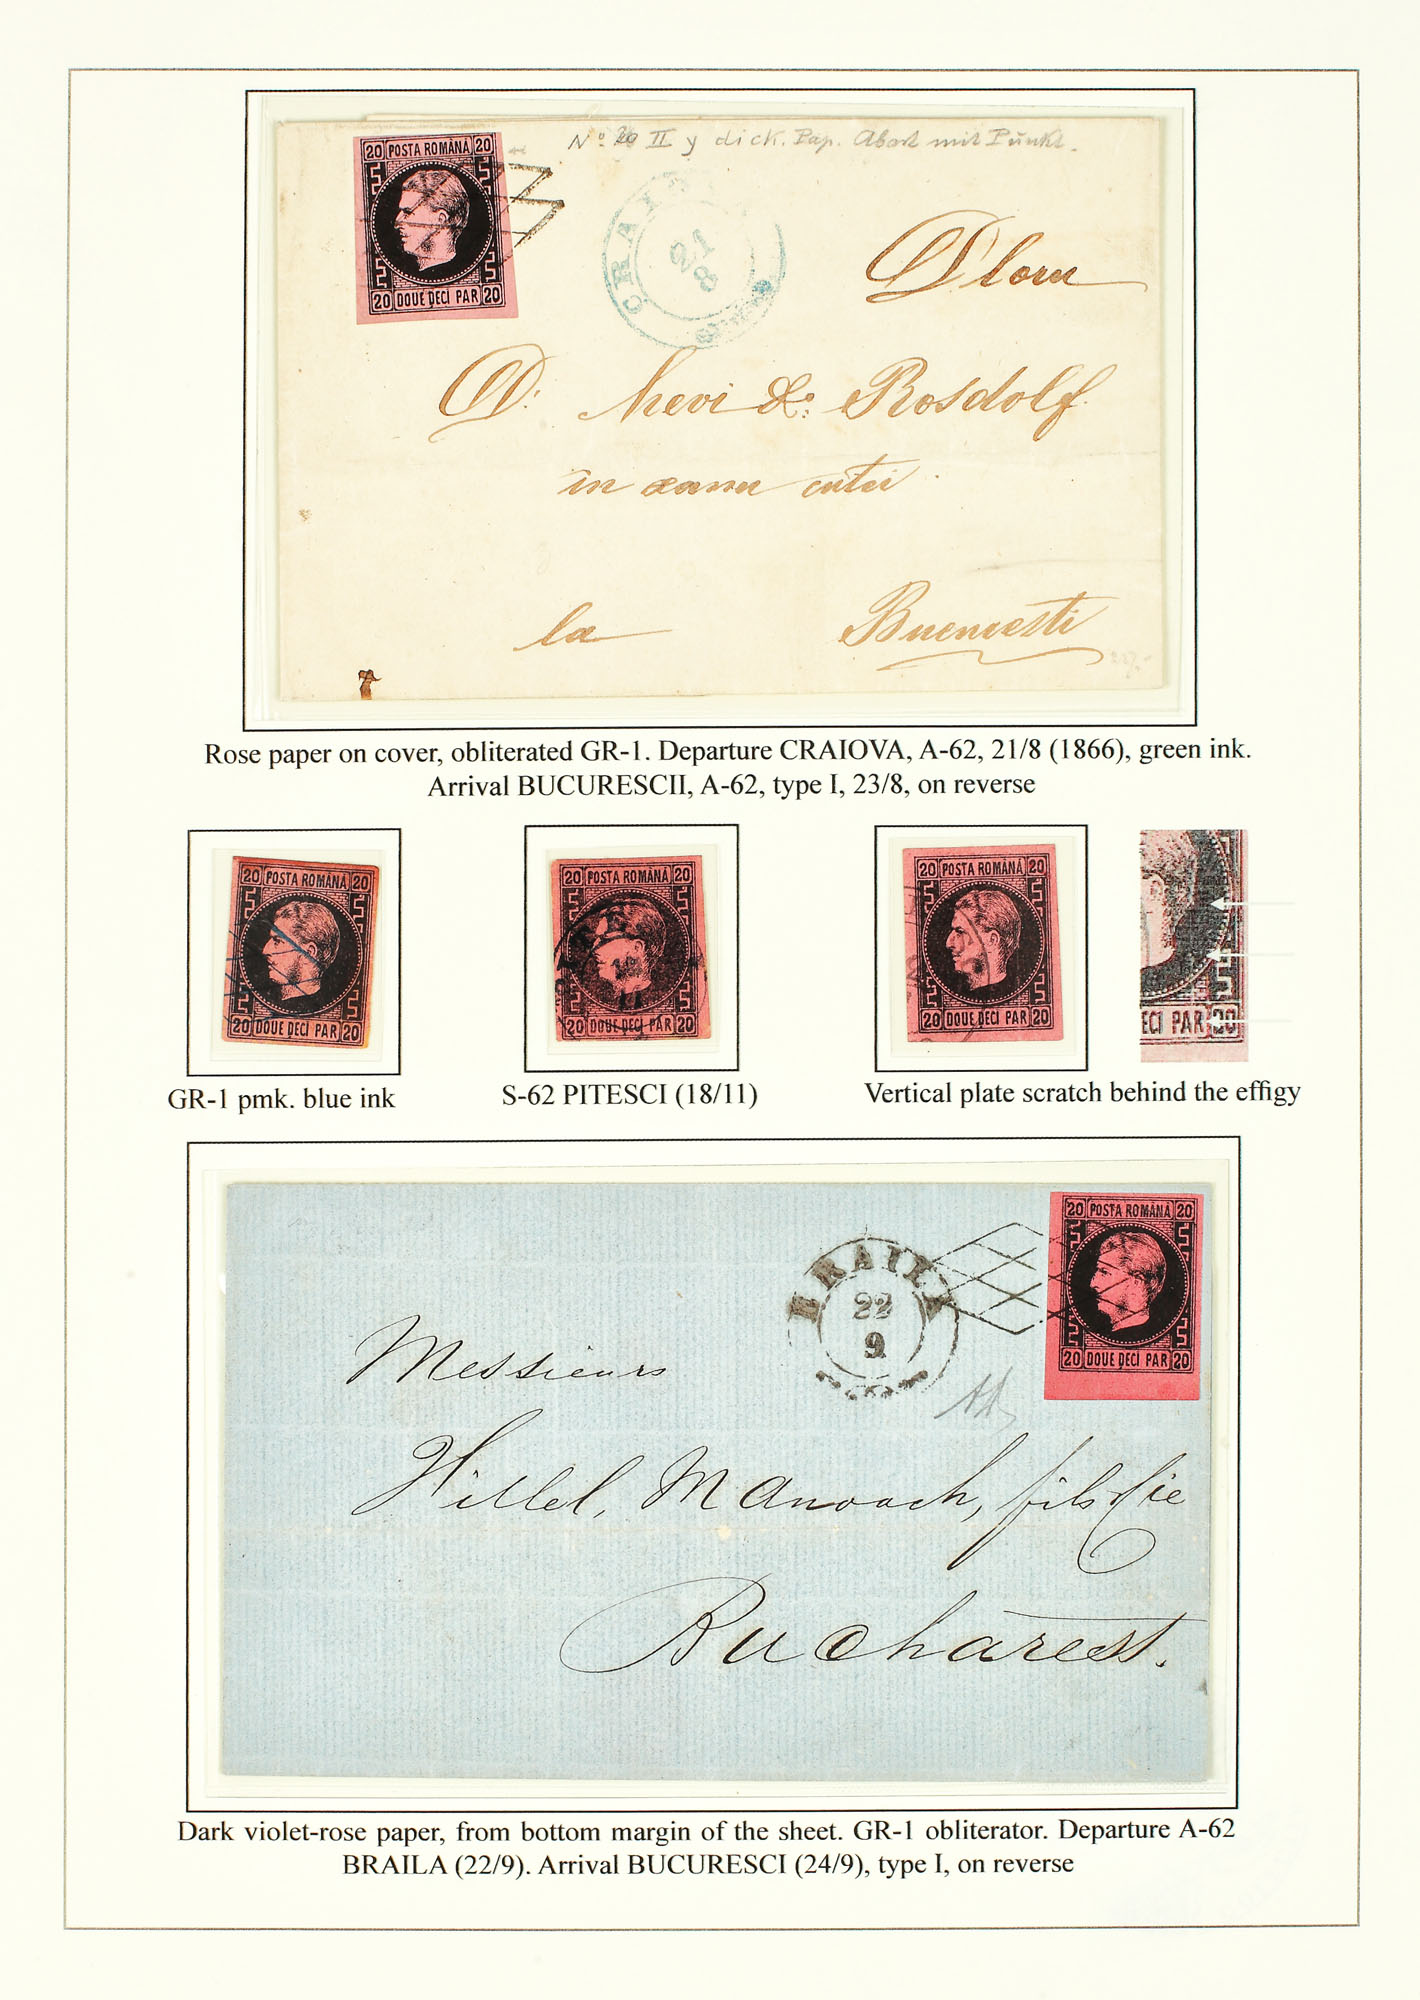 20 POSTA ROMÂNĂ 20
20 DOUE DECI PAR 20
No 20 II y dick. Pap. Abart mit Punkt.
CRAIO
21
8
Dlorŭ
D. Nevi & Rosdolf
in
la Bucuresti
Rose paper on cover, obliterated GR-1. Departure CRAIOVA, A-62, 21/8 (1866), green ink.
Arrival BUCURESCII, A-62, type I, 23/8, on reverse
20 POSTA ROMÂNĂ 20
20 DOUE DECI PAR 20
GR-1 pmk. blue ink
20 POSTA ROMÂNĂ 20
20 DOUE DECI PAR 20
S-62 PITESCI (18/11)
20 POSTA ROMÂNĂ 20
20 DOUE DECI PAR 20
ECI PAR 20
Vertical plate scratch behind the effigy
20 POSTA ROMÂNĂ 20
20 DOUE DECI PAR 20
BRAILA
22
9
Messieurs
Hillel, Manoach, fils & Cie
Bucharest.
Dark violet-rose paper, from bottom margin of the sheet. GR-1 obliterator. Departure A-62
BRAILA (22/9). Arrival BUCURESCI (24/9), type I, on reverse